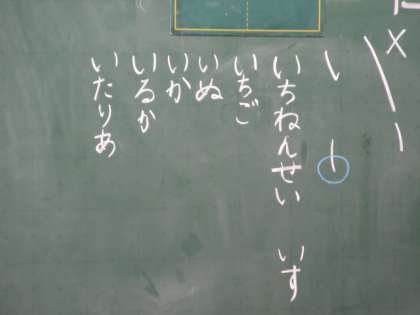 い
いちねんせい　いす
いちご
いぬ
いか
いるか
いたりあ